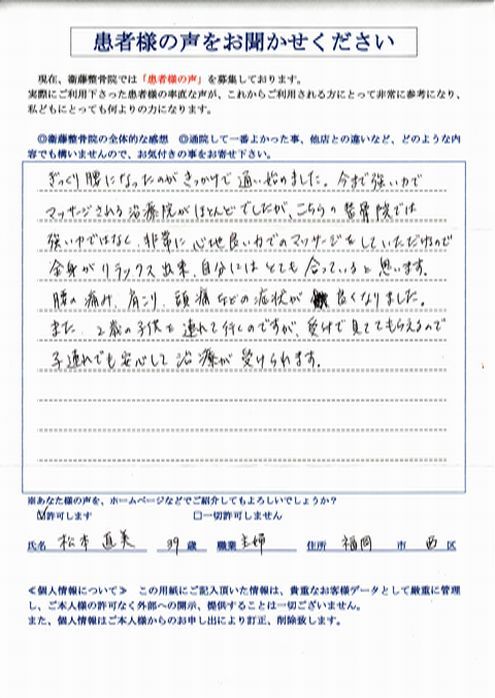 患者様の声をお聞かせください
現在、衛藤整骨院では「患者様の声」を募集しております。
実際にご利用下さった患者様の率直な声が、これからご利用される方にとって非常に参考になり、
私どもにとっても何よりの力になります。
◎衛藤整骨院の全体的な感想 ◎通院して一番よかった事、他店との違いなど、どのような内
容でも構いませんので、お気付きの事をお寄せ下さい。
ぎっくり腰になったのがきっかけで通い始めました。今まで強い力で
マッサージされる治療院がほとんどでしたが、こちらの整骨院では
強い力ではなく、非常に心地良い力でのマッサージをしていただけるので
全身がリラックス出来、自分にはとても合っていると思います。
腰の痛み、肩こり、頭痛などの症状が良くなりました。
また、2歳の子供を連れて行くのですが、受付で見ててもらえるので
子連れでも安心して治療が受けられます。
※あなた様の声を、ホームページなどでご紹介してもよろしいでしょうか?
☑許可します □一切許可しません
氏名 松本 直美 39歳 職業 主婦 住所 福岡 市 西 区
≪個人情報について≫ この用紙にご記入頂いた情報は、貴重なお客様データとして厳重に管理
し、ご本人様の許可なく外部への開示、提供することは一切ございません。
また、個人情報はご本人様からのお申し出により訂正、削除致します。